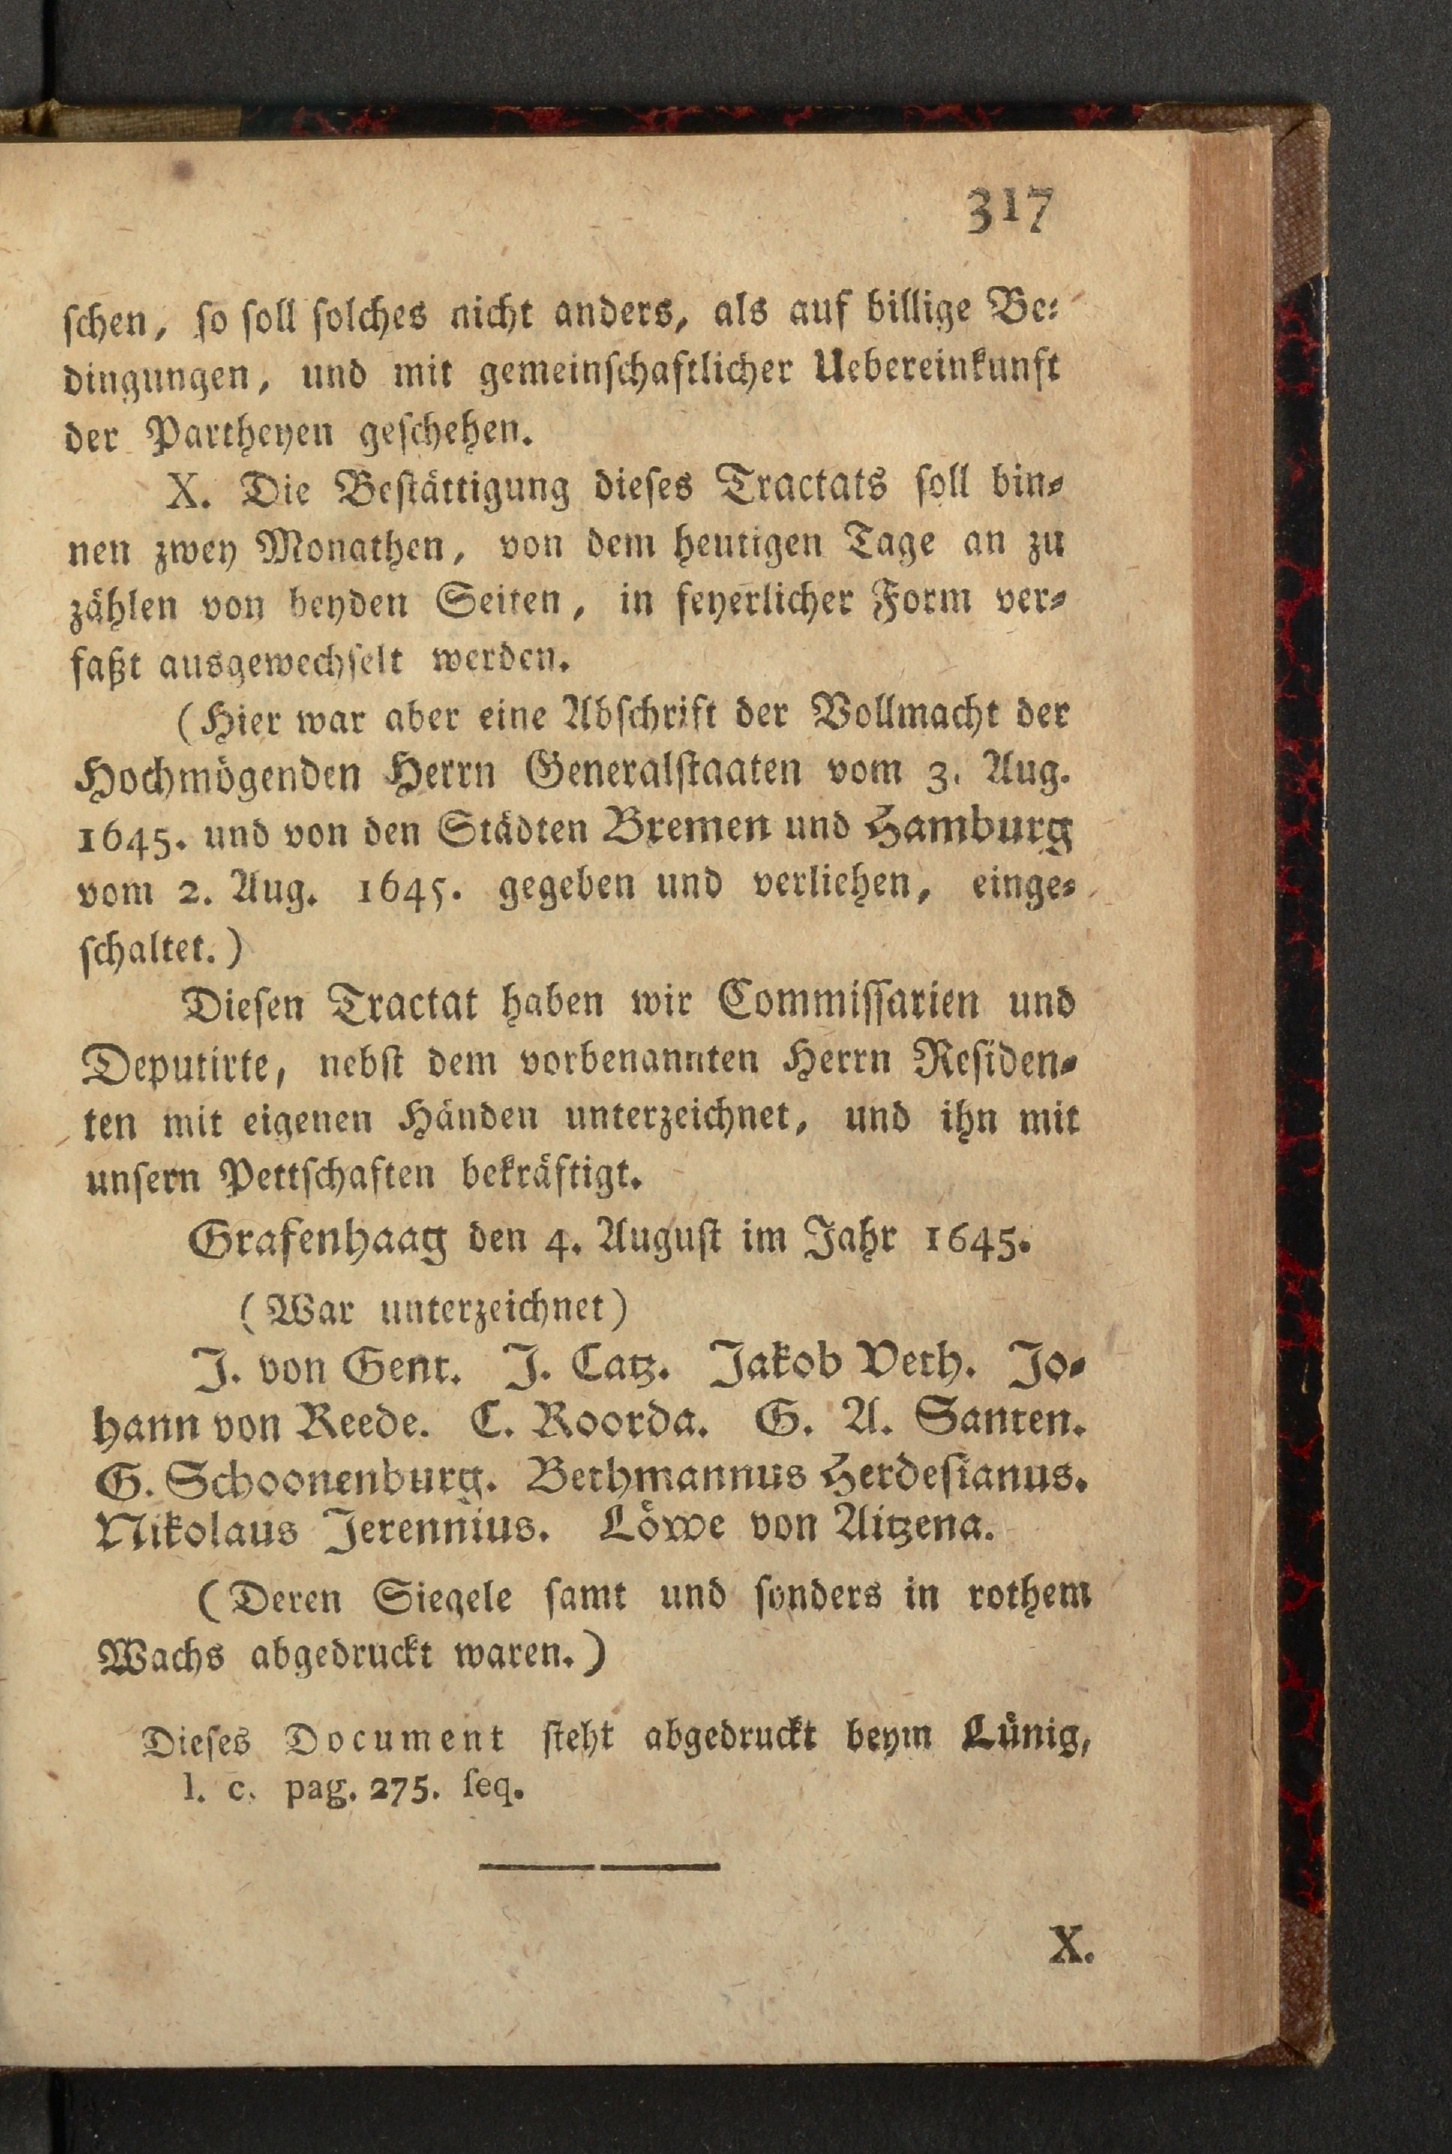 317
schen, so soll solches nicht anders, als auf billige Be-
dingungen, und mit gemeinschaftlicher Uebereinkunft
der Partheyen geschehen.
X. Die Bestättigung dieses Tractats soll bin-
nen zwey Monathen, von dem heutigen Tage an zu
zählen von beyden Seiten, in feyerlicher Form ver-
faßt ausgewechselt werden.
(Hier war aber eine Abschrift der Vollmacht der
Hochmögenden Herrn Generalstaaten vom 3. Aug.
1645. und von den Städten Bremen und Hamburg
vom 2. Aug. 1645. gegeben und verliehen, einge-
schaltet.)
Diesen Tractat haben wir Commissarien und
Deputirte, nebst dem vorbenannten Herrn Residen-
ten mit eigenen Händen unterzeichnet, und ihn mit
unsern Pettschaften bekräftigt.
Grafenhaag den 4. August im Jahr 1645.
(War unterzeichnet)
J. von Gent. J. Catz. Jakob Veth. Jo-
hann von Reede. C. Roorda. G. A. Santen.
G. Schoonenburg. Bethmannus Herdesianus.
Nikolaus Jerennius. Löwe von Aitzena.
(Deren Siegele samt und sonders in rothem
Wachs abgedruckt waren.)
Dieses Document steht abgedruckt beym Lünig,
l. c. pag. 275. seq.
X.